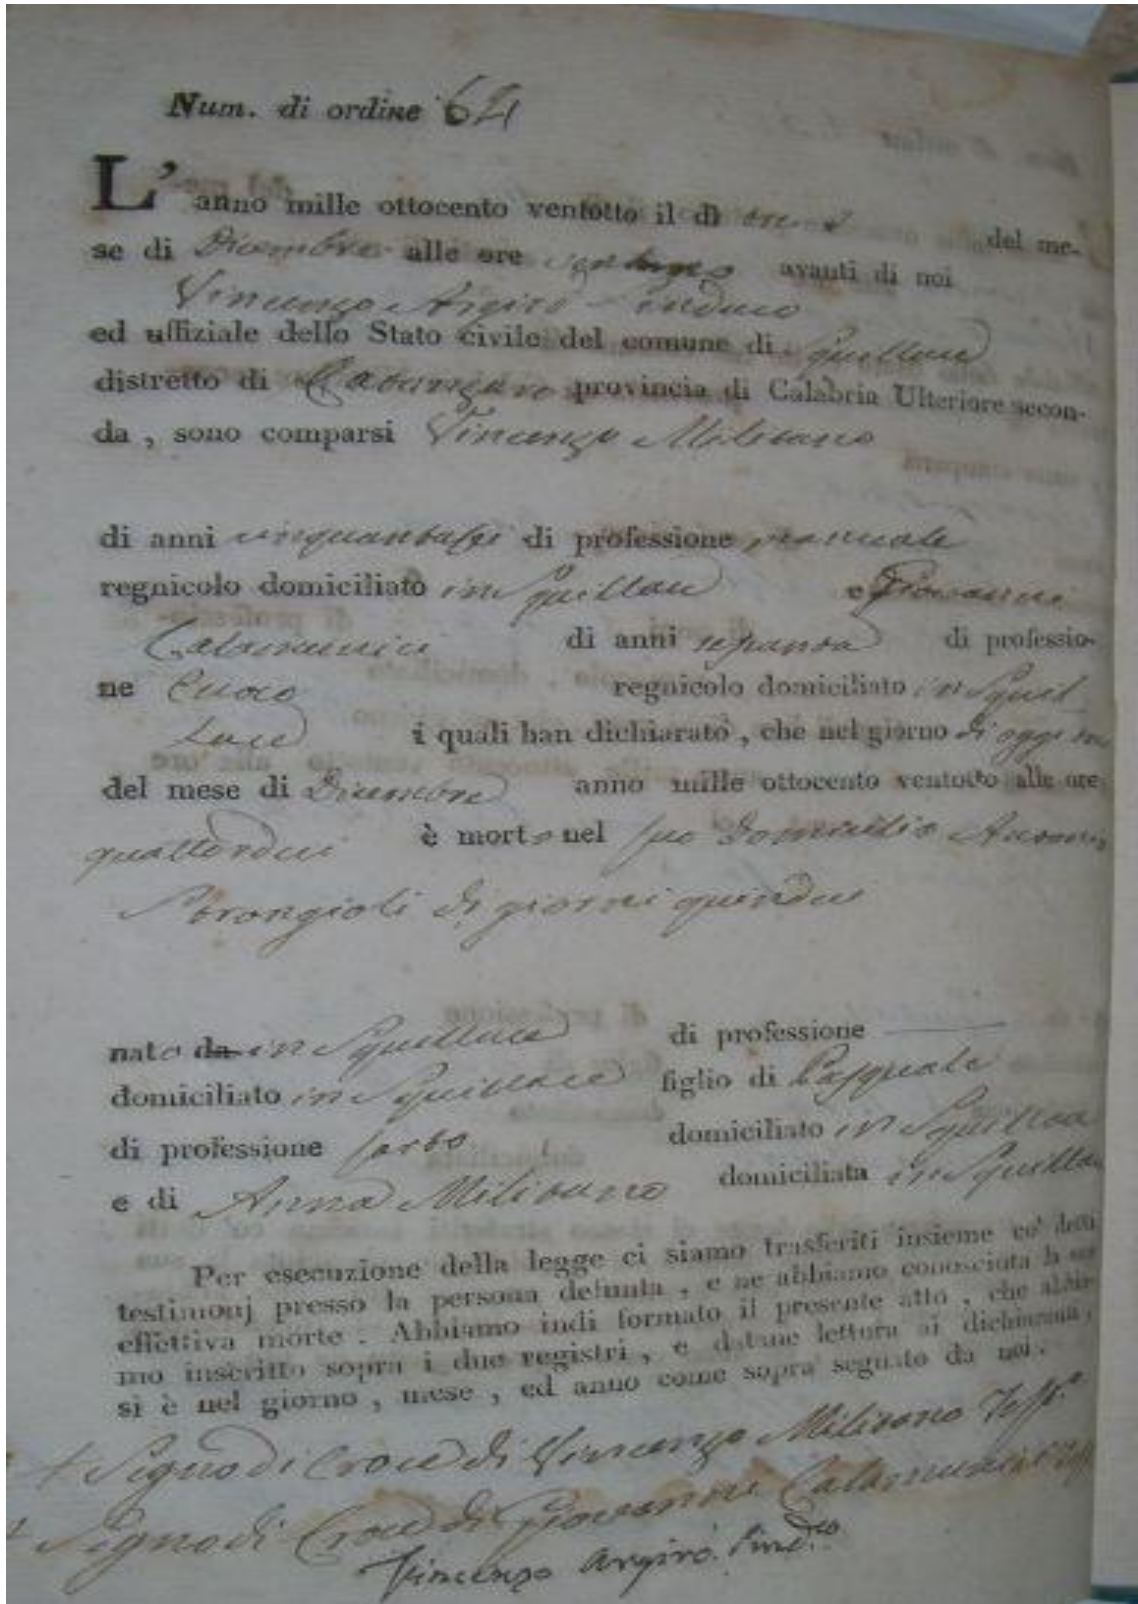 Num. di ordine 62
L'anno mille ottocento ventotto il dì del me-
se di Dicembre alle ore avanti di noi
Vincenzo Argirò Sindaco
ed uffiziale dello Stato civile del comune di Squillace
distretto di Catanzaro provincia di Calabria Ulteriore secon-
da, sono comparsi Vincenzo Militano
di anni cinquantasei di professione manuale
regnicolo domiciliato in Squillace e Giovanni
Calamunici di anni settanta di professio-
ne Cuoco regnicolo domiciliato in Squil
lace i quali han dichiarato, che nel giorno di oggi
del mese di Dicembre anno mille ottocento ventotto alle ore
quattordici è morto nel suo domicilio
Strongioli di giorni quindici
nato da in Squillace di professione
domiciliato in Squillace figlio di Pasquale
di professione sarto domiciliato in Squillace
e di Anna Militano domiciliata in Squillace
Per esecuzione della legge ci siamo trasferiti insieme co' detti
testimonj presso la persona defunta, e ne abbiamo conosciuta la sua
effettiva morte. Abbiamo indi formato il presente atto, che abbia-
mo inscritto sopra i due registri, e datane lettura ai dichiaranti,
si è nel giorno, mese, ed anno come sopra segnato da noi.
+ Segno di Croce di Vincenzo Militano Test.e
+ Segno di Croce di Giovanni Calamunici
Vincenzo Argirò Sind.co